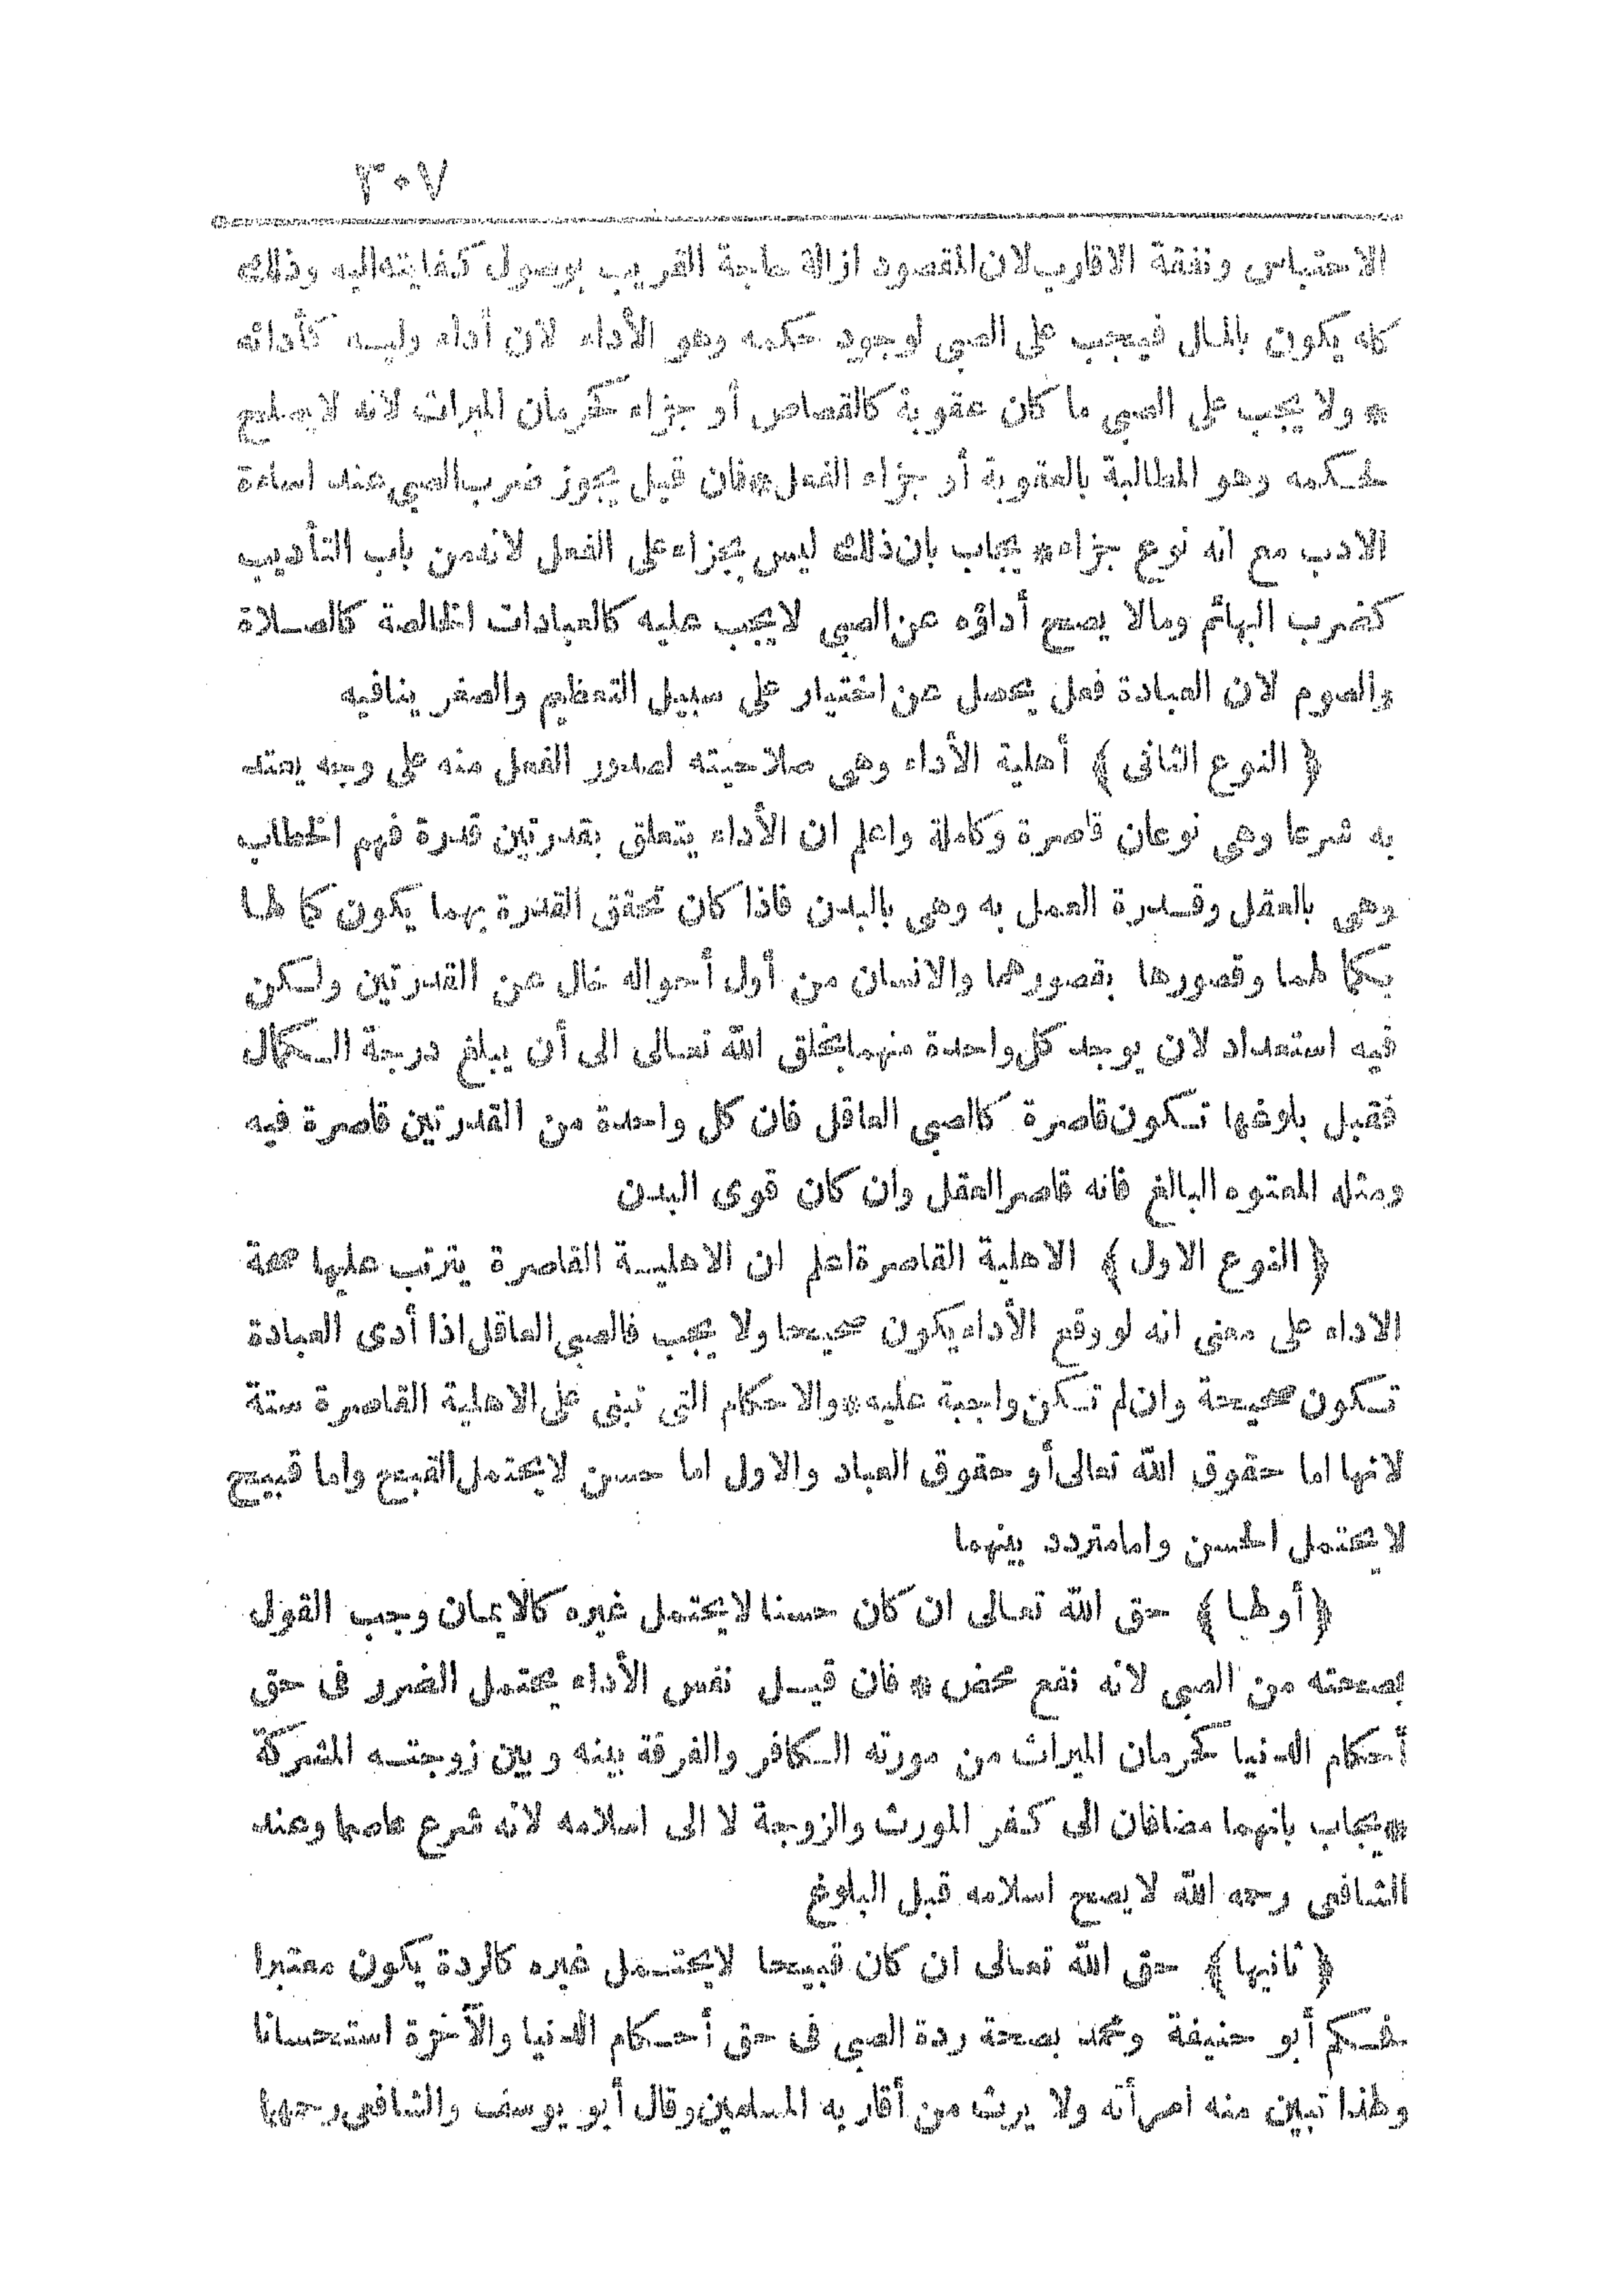 ٣٠٧
الاحتباس ونفقة الاقارب لان المقصود ازالة حاجة القريب بوصول كفايته اليه وذلك
كله يكون بالمال فيجب على الصبي لوجود حكمه وهو الأداء لان أداء وليه كأدائه
* ولا يجب على الصبي ما كان عقوبة كالقصاص أو جزاء كحرمان الميراث لانه لا يصلح
لحكمه وهو المطالبة بالعقوبة أو جزاء الفعل * فان قيل يجوز ضرب الصبي عند اساءة
الادب مع انه نوع جزاء * يجاب بان ذلك ليس بجزاء على الفعل لانه من باب التأديب
كضرب البهائم ومالا يصح أداؤه عن الصبي لا يجب عليه كالعبادات الخالصة كالصلاة
والصوم لان العبادة فعل يحصل عن اختيار على سبيل التعظيم والصغر ينافيه
﴿ النوع الثانى ﴾ أهلية الأداء وهى صلاحيته لصدور الفعل منه على وجه يعتد
به شرعا وهى نوعان قاصرة وكاملة واعلم ان الأداء يتعلق بقدرتين قدرة فهم الخطاب
وهى بالعقل وقدرة العمل به وهى بالبدن فاذا كان تحقق القدرة بهما يكون كمالها
بكمالهما وقصورها بقصورهما والانسان من أول أحواله خال عن القدرتين ولكن
فيه استعداد لان يوجد كل واحدة منهما بخلق الله تعالى الى أن يبلغ درجة الكمال
فقبل بلوغها تكون قاصرة كالصبي العاقل فان كل واحدة من القدرتين قاصرة فيه
ومثله المعتوه البالغ فانه قاصر العقل وان كان قوى البدن
﴿ النوع الاول ﴾ الاهلية القاصرة اعلم ان الاهلية القاصرة يترتب عليها صحة
الاداء على معنى انه لو وقع الأداء يكون صحيحا ولا يجب فالصبي العاقل اذا أدى العبادة
تكون صحيحة وان لم تكن واجبة عليه * والاحكام التى تبنى على الاهلية القاصرة ستة
لانها اما حقوق الله تعالى أو حقوق العباد والاول اما حسن لا يحتمل القبح واما قبيح
لا يحتمل الحسن واما متردد بينهما
﴿ أولها ﴾ حق الله تعالى ان كان حسنا لا يحتمل غيره كالايمان وجب القول
بصحته من الصبي لانه نفع محض * فان قيل نفس الأداء يحتمل الضرر فى حق
أحكام الدنيا كحرمان الميراث من مورثه الكافر والفرقة بينه وبين زوجته المشركة
* يجاب بانهما مضافان الى كفر المورث والزوجة لا الى اسلامه لانه شرع عاصما وعند
الشافعى رحمه الله لا يصح اسلامه قبل البلوغ
﴿ ثانيها ﴾ حق الله تعالى ان كان قبيحا لا يحتمل غيره كالردة يكون معتبرا
فحكم أبو حنيفة ومحمد بصحة ردة الصبي فى حق أحكام الدنيا والآخرة استحسانا
ولهذا تبين منه امرأته ولا يرث من أقاربه المسلمين وقال أبو يوسف والشافعى رحمهما